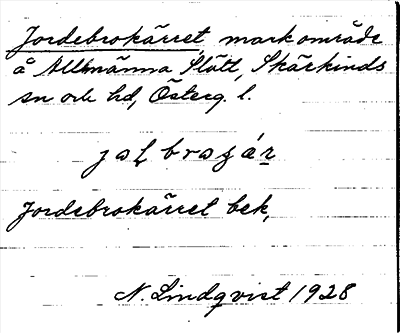 Jordebrokärret, markområde
å Allmänna Slätt, Skärkinds
sn och hd, Österg. l.
Jordebrokärret bek.
N. Lindqvist 1928